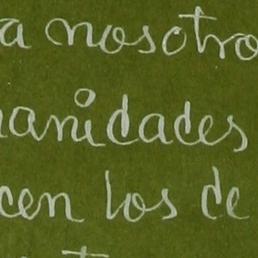 a nosotro
anidades
cen los de